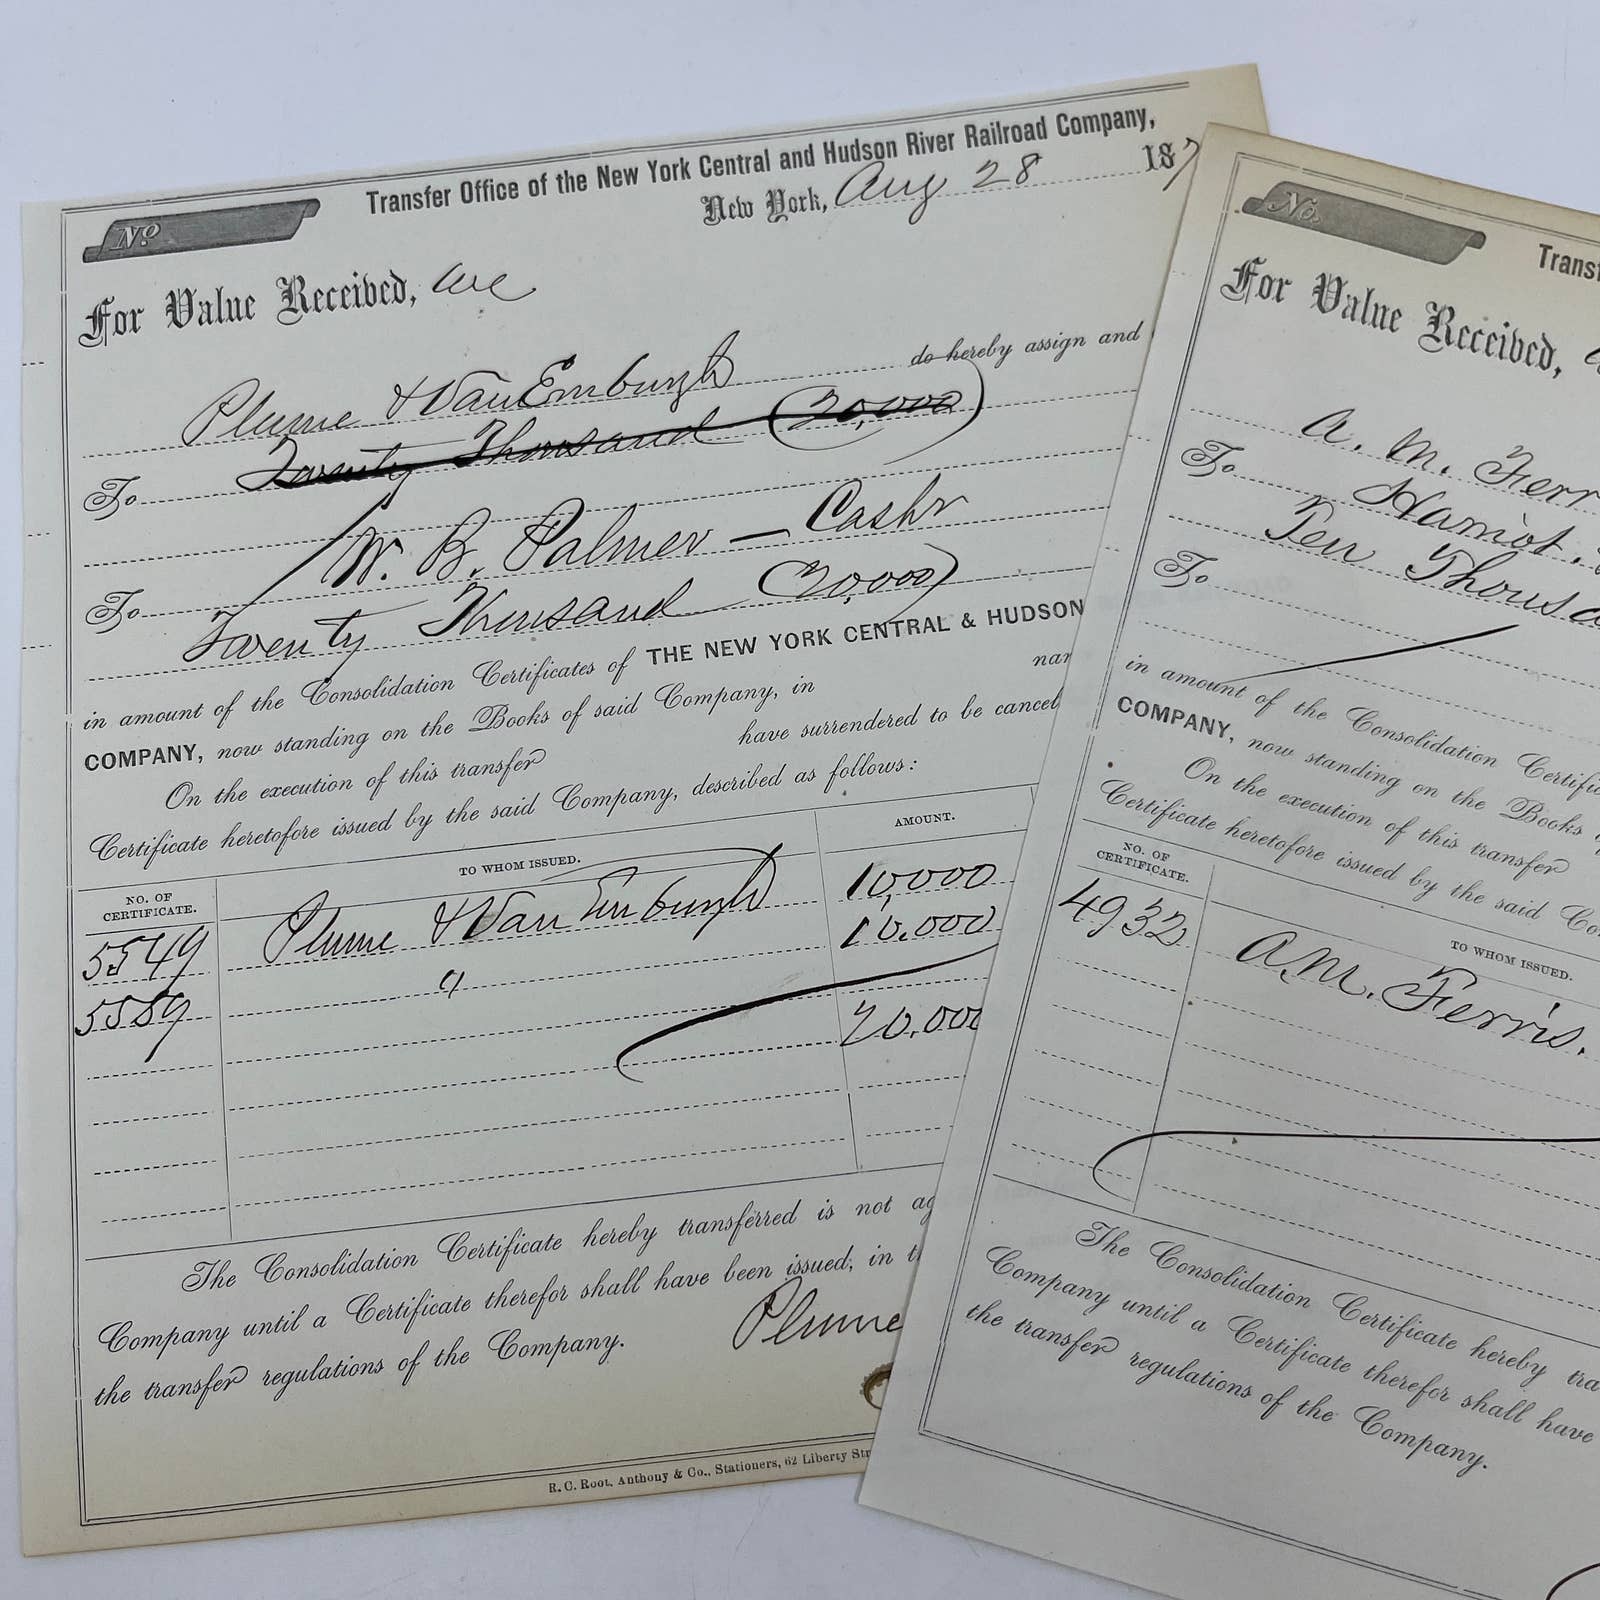 Transfer Office of the New York Central and Hudson River Railroad Company,
No
New York, Aug 28 187
For Value Received, we
Plume & Van Emburgh do hereby assign and
To Twenty Thousand (20,000)
W. B. Palmer — Cashr
To Twenty Thousand (20,000)
in amount of the Consolidation Certificates of THE NEW YORK CENTRAL & HUDSON
COMPANY, now standing on the Books of said Company, in
On the execution of this transfer have surrendered to be cancel
Certificate heretofore issued by the said Company, described as follows:
NO. OF CERTIFICATE. TO WHOM ISSUED. AMOUNT.
5549 Plume & Van Emburgh 10,000
5589 " 10,000
20,000
The Consolidation Certificate hereby transferred is not
Company until a Certificate therefor shall have been issued, in
the transfer regulations of the Company.
Plume
R. C. Root, Anthony & Co., Stationers, 62 Liberty
No.
For Value Received,
A. M.
To
Ten
To
in amount of the Consolidation
COMPANY, now standing on the Books
On the execution of this transfer
Certificate heretofore issued by the said
NO. OF CERTIFICATE. TO WHOM ISSUED.
4932 A. M. Ferris.
The Consolidation Certificate hereby
Company until a Certificate therefor shall have
the transfer regulations of the Company.